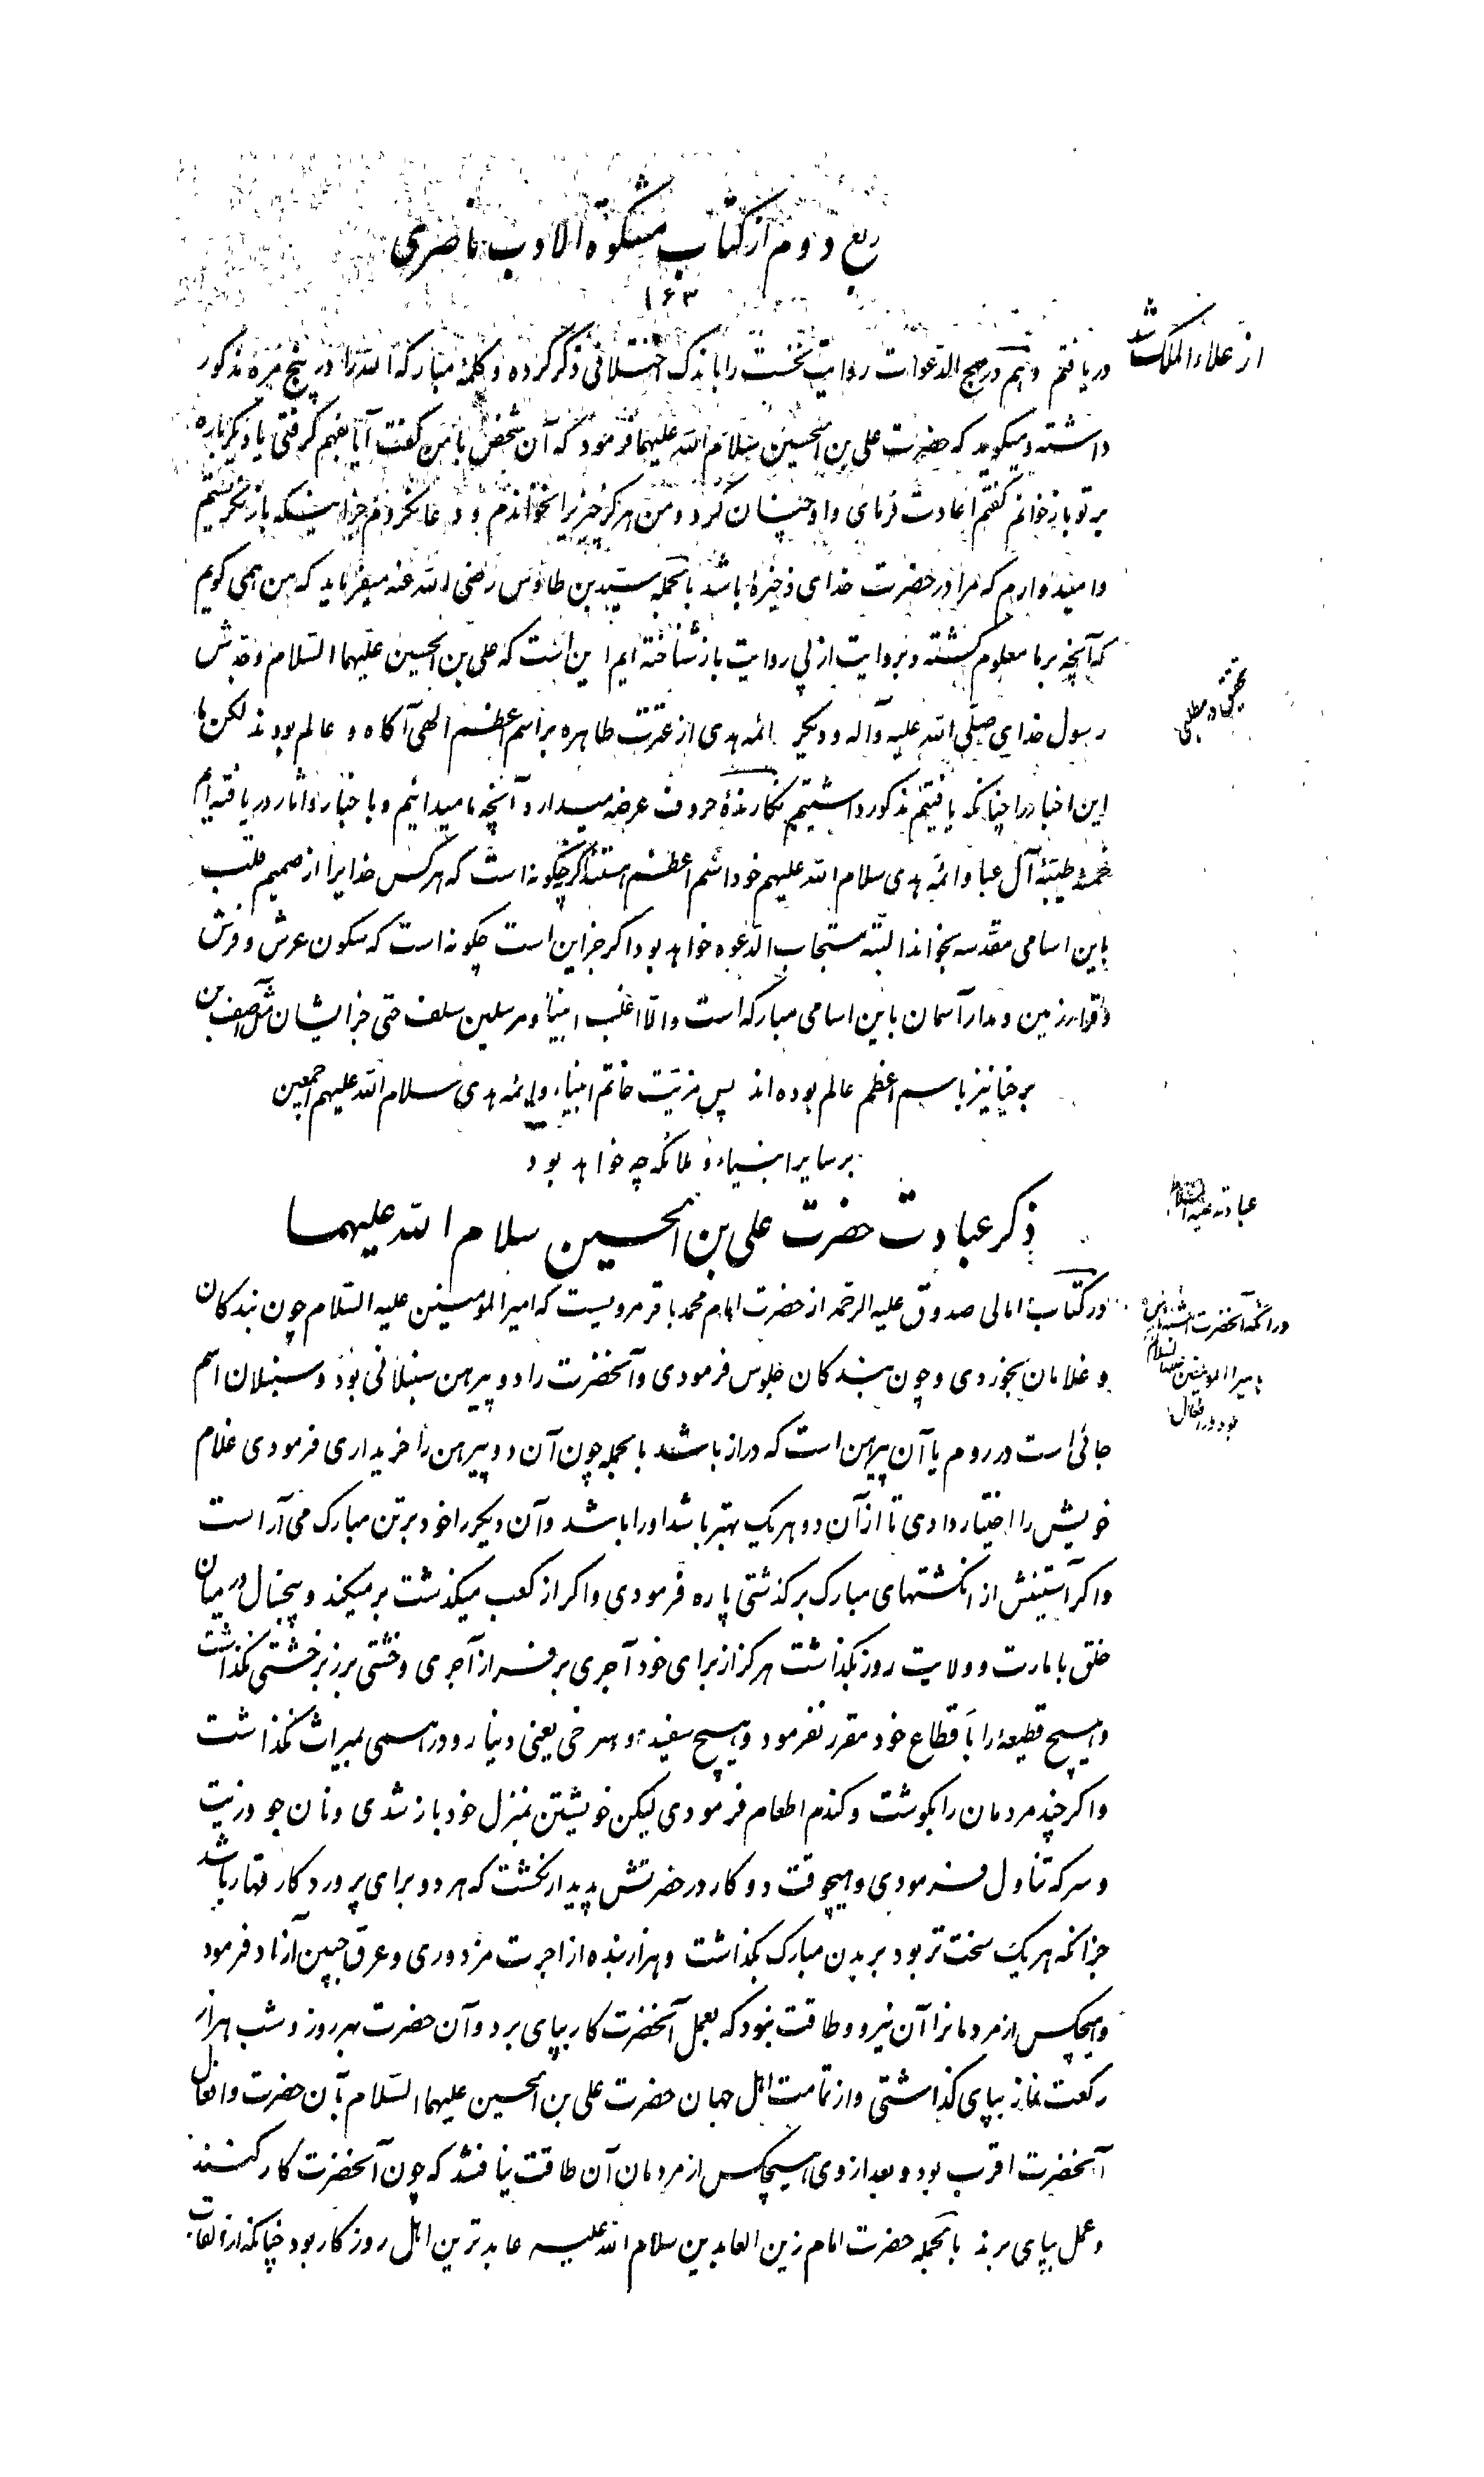 ربع دوم از کتاب مشکوة الادب ناصری
۱۶۳
از علاء الملک شد
دریافتم و هم در مهج الدعوات روایت نخست را باندک اختلافی ذکر کرده و کلمهٔ مبارکه الله را در پنج مره مذکور
داشته و میگوید که حضرت علی بن الحسین سلام الله علیهما فرمود که آن شخص با من گفت آیا بفهم گرفتی یا دیگرباره
بر تو باز خوانم گفتم اعادت فرمای و او چنان کرد و من هرگز چیزیرا نخواندم و دعا نکردم جز اینکه باز نگریستم
و امیدوارم که مرا در حضرت خدای ذخیرهٔ باشد بالجمله سید بن طاوس رضی الله عنه میفرماید که من همی گویم
که آنچه بر ما معلوم گشته و بروایت از پی روایت باز شناخته ایم این است که علی بن الحسین علیهما السلام و جدش
رسول خدای صلی الله علیه و آله و دیگر ائمه هدی از عترت طاهره بر اسم اعظم الهی آگاه و عالم بودند لکن ما
تحقیق در مطلبی
این اخبار را چنانکه یافتیم مذکور داشتیم نگارندهٔ حروف عرضه میدارد آنچه ما میدانیم و با خبار و آثار دریافته ایم
خمسهٔ طیبهٔ آل عبا و ائمه هدی سلام الله علیهم خود اسم اعظم هستند اگر چگونه است که هر کس خدایرا از صمیم قلب
باین اسامی مقدسه بخواند البته مستجاب الدعوه خواهد بود اگر جز این است چگونه است که سکون عرش و فرش
و قرار زمین و مدار آسمان باین اسامی مبارکه است و الا اغلب انبیا و مرسلین سلف حتی جز ایشان مثل آصف بن
برخیا نیز باسم اعظم عالم بوده اند پس مزیت خاتم انبیاء و ائمه هدی سلام الله علیهم اجمعین
بر سایر انبیاء و ملائکه چه خواهد بود
عبادت علیه السلام
ذکر عبادت حضرت علی بن الحسین سلام الله علیهما
در کتاب امالی صدوق علیه الرحمه از حضرت امام محمد باقر مرویست که امیر المؤمنین علیه السلام چون بندگان
در آنکه آنحضرت
بامیر المؤمنین علیهما السلام
بود در افعال
و غلامان بخوردی و چون بندگان جلوس فرمودی و آنحضرت را دو پیرهن سنبلانی بود و سنبلان اسم
جائی است در روم یا آن پیرهن است که دراز باشد بالجمله چون آن دو پیرهن را خریداری فرمودی غلام
خویش را اختیار دادی تا از آن دو هر یک بهتر باشد او را باشد و آن دیگر را خود بر تن مبارک می آراست
و اگر آستینش از انگشتهای مبارک برگذشتی پاره فرمودی و اگر از کعب میگذشت برمیکند و پنجسال در میان
خلق بامارت و ولایت روز بگذاشت هرگز از برای خود آجری بر فراز آجری و خشتی بر زبر خشتی نگذاشت
و هیچ قطیعهٔ را باقطاع خود مقرر نفرمود و هیچ سفید و سرخی یعنی دینار و درهمی بمیراث نگذاشت
و اگر چند مردمان را بگوشت و گندم اطعام فرمودی لیکن خویشتن بمنزل خود باز شدی و نان جو و زیت
و سرکه تناول فرمودی و هیچوقت دو کار در حضرتش پدیدار نگشت که هر دو برای پروردگار قهار باشد
جز آنکه هر یک سخت تر بود بر بدن مبارک بگذاشت و هزار بنده از اجرت مزدوری و عرق جبین آزاد فرمود
و هیچکس از مردمانرا آن نیرو و طاقت نبود که بعمل آنحضرت کار بپای برد و آن حضرت بهر روز و شب هزار
رکعت نماز بپای گذاشتی و از تمامت اهل جهان حضرت علی بن الحسین علیهما السلام بآن حضرت و افعال
آنحضرت اقرب بود و بعد از وی هیچکس از مردمان آن طاقت نیافتند که چون آنحضرت کار کنند
و عمل بپای برند بالجمله حضرت امام زین العابدین سلام الله علیه عابدترین اهل روزگار بود چنانکه از ثفنات